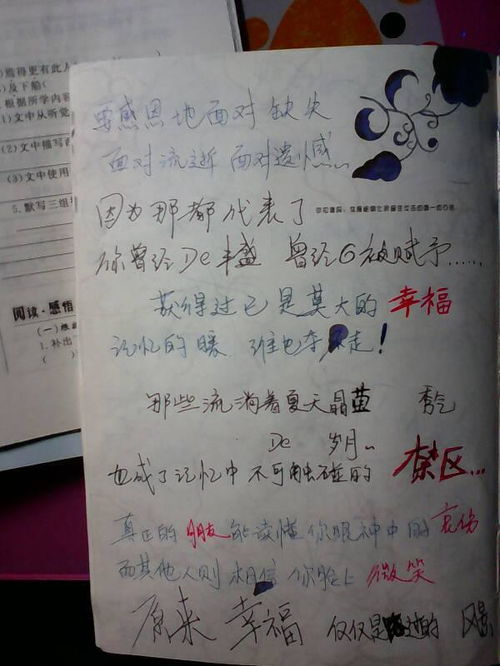 尝得更有此人
及下船(
根据所学内容
(1)文中从听觉
(2)文中描写
(3)文中使用
5.默写三组
阅读·感悟
(一)
1.补出
(    )
要感恩地面对缺失
面对流逝 面对遗憾...
因为那都代表了
你曾经De丰盛 曾经G被赋予......
获得过已是莫大的 幸福
记忆的暖 谁也夺不走!
那些流淌着夏天晶蓝 香气
De 岁月..
也成了记忆中不可触碰的 禁区...
真正的朋友能读懂你眼神中的哀伤
而其他人则相信你脸上微笑
原来 幸福 仅仅是 途的 风景